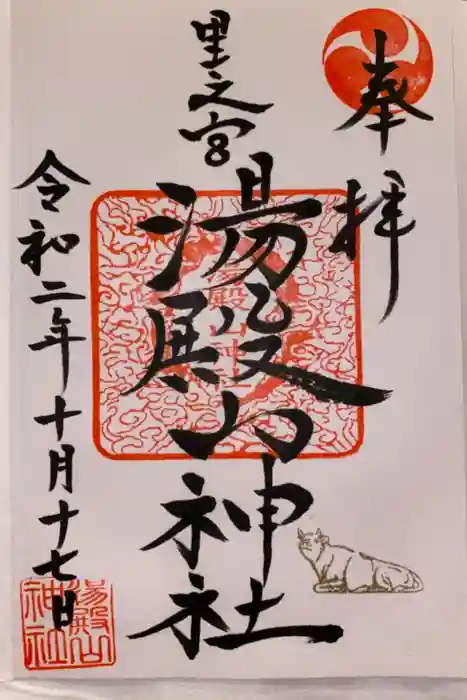 奉拝
里之宮
湯殿山神社
令和二年十月十七日
湯殿山神社
湯殿山
神社